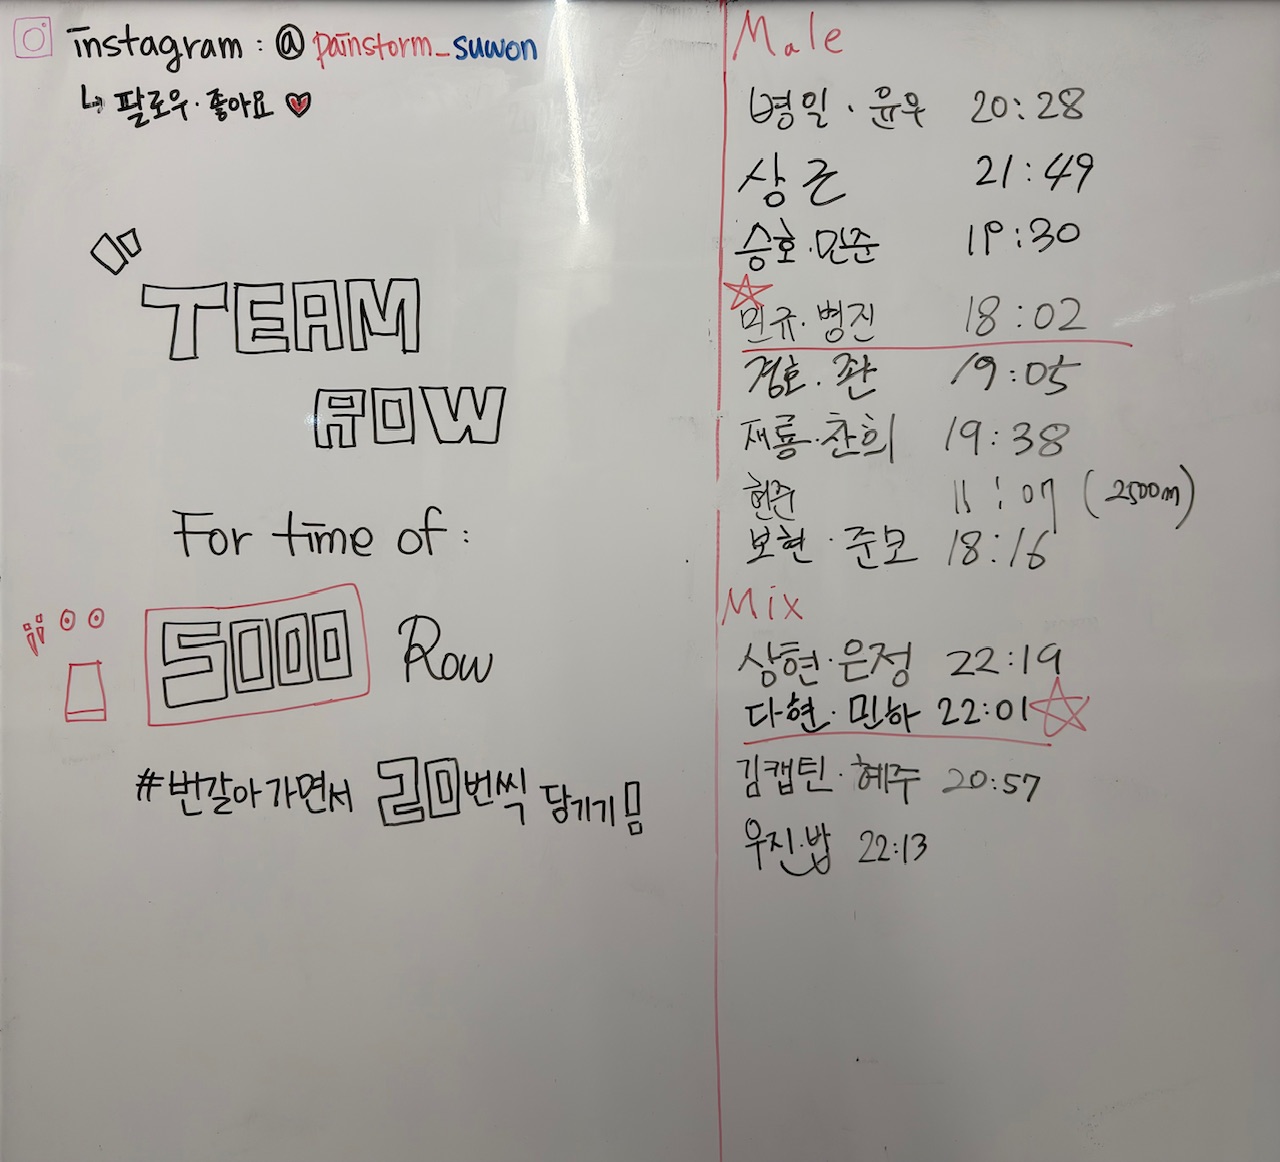 instagram : @ painstorm_suwon
↳ 팔로우·좋아요 ♥
" TEAM
ROW
For time of :
5000 Row
#번갈아 가면서 20번씩 당기기!
Male
병일 · 윤우 20:28
상근 21:49
승호·민준 19:30
민규·병진 18:02
경호·좐 19:05
재룡·찬희 19:38
현주 11:07 (2500m)
보현·준모 18:16
Mix
상현·은정 22:19
다현·민하 22:01
김캡틴·혜주 20:57
우진·밥 22:13